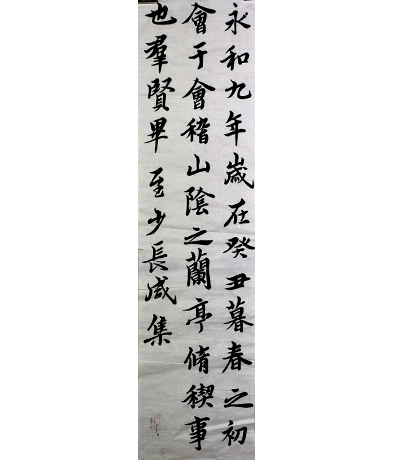 永和九年歲在癸丑暮春之初
會于會稽山陰之蘭亭脩稧事
也羣賢畢至少長咸集